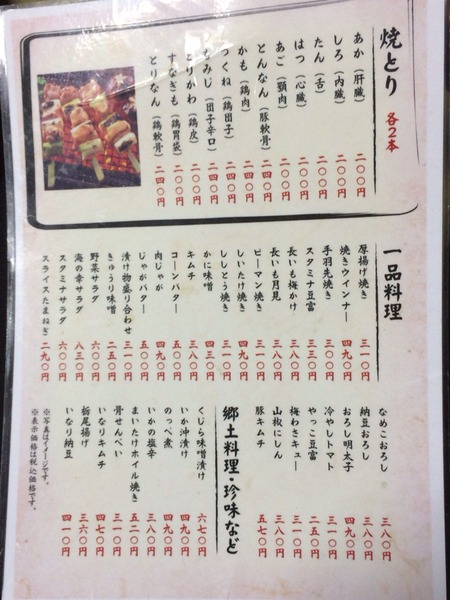 焼とり 各2本
あか（肝臓） 二〇〇円
しろ（内臓） 二〇〇円
たん（舌） 二〇〇円
はつ（心臓） 二〇〇円
あご（顎肉） 二〇〇円
とんなん（豚軟骨） 二四〇円
かも（鶏肉） 二四〇円
つくね（鶏団子） 二四〇円
もみじ（団子辛口） 二四〇円
とりかわ（鶏皮） 二〇〇円
すなぎも（鶏胃袋） 二〇〇円
とりなん（鶏軟骨） 二四〇円
一品料理
厚揚げ焼き 三一〇円
焼きウインナー 四九〇円
手羽先焼き 三〇〇円
スタミナ豆富 三三〇円
長いも梅かけ 三八〇円
長いも月見 三八〇円
ピーマン焼き 三一〇円
しいたけ焼き 三八〇円
ししとう焼き 三一〇円
かに味噌 四三〇円
キムチ 三八〇円
コーンバター 五〇〇円
肉じゃが 四九〇円
じゃがバター 五〇〇円
漬け物盛り合わせ 三一〇円
きゅうり味噌 二五〇円
野菜サラダ 六〇〇円
海の幸サラダ 八三〇円
スタミナサラダ 六〇〇円
スライスたまねぎ 二九〇円
なめこおろし 三八〇円
納豆おろし 三八〇円
おろし明太子 四九〇円
冷やしトマト 三一〇円
やっこ豆富 二五〇円
梅わさキュー 三一〇円
山椒にしん 三八〇円
豚キムチ 五七〇円
郷土料理・珍味など
くじら味噌漬け 六七〇円
いか沖漬け 四九〇円
のっぺ煮 四九〇円
いかの塩辛 三八〇円
まいたけホイル焼き 五一〇円
骨せんべい 三一〇円
いなりキムチ 四七〇円
栃尾揚げ 三六〇円
いなり納豆 四一〇円
※写真はイメージです。
※表示価格は税込価格です。